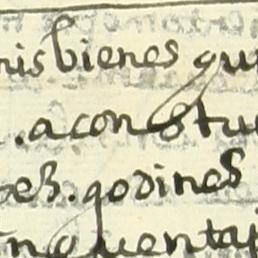 mis bienes qu
. a constu
es. godines
inquenta